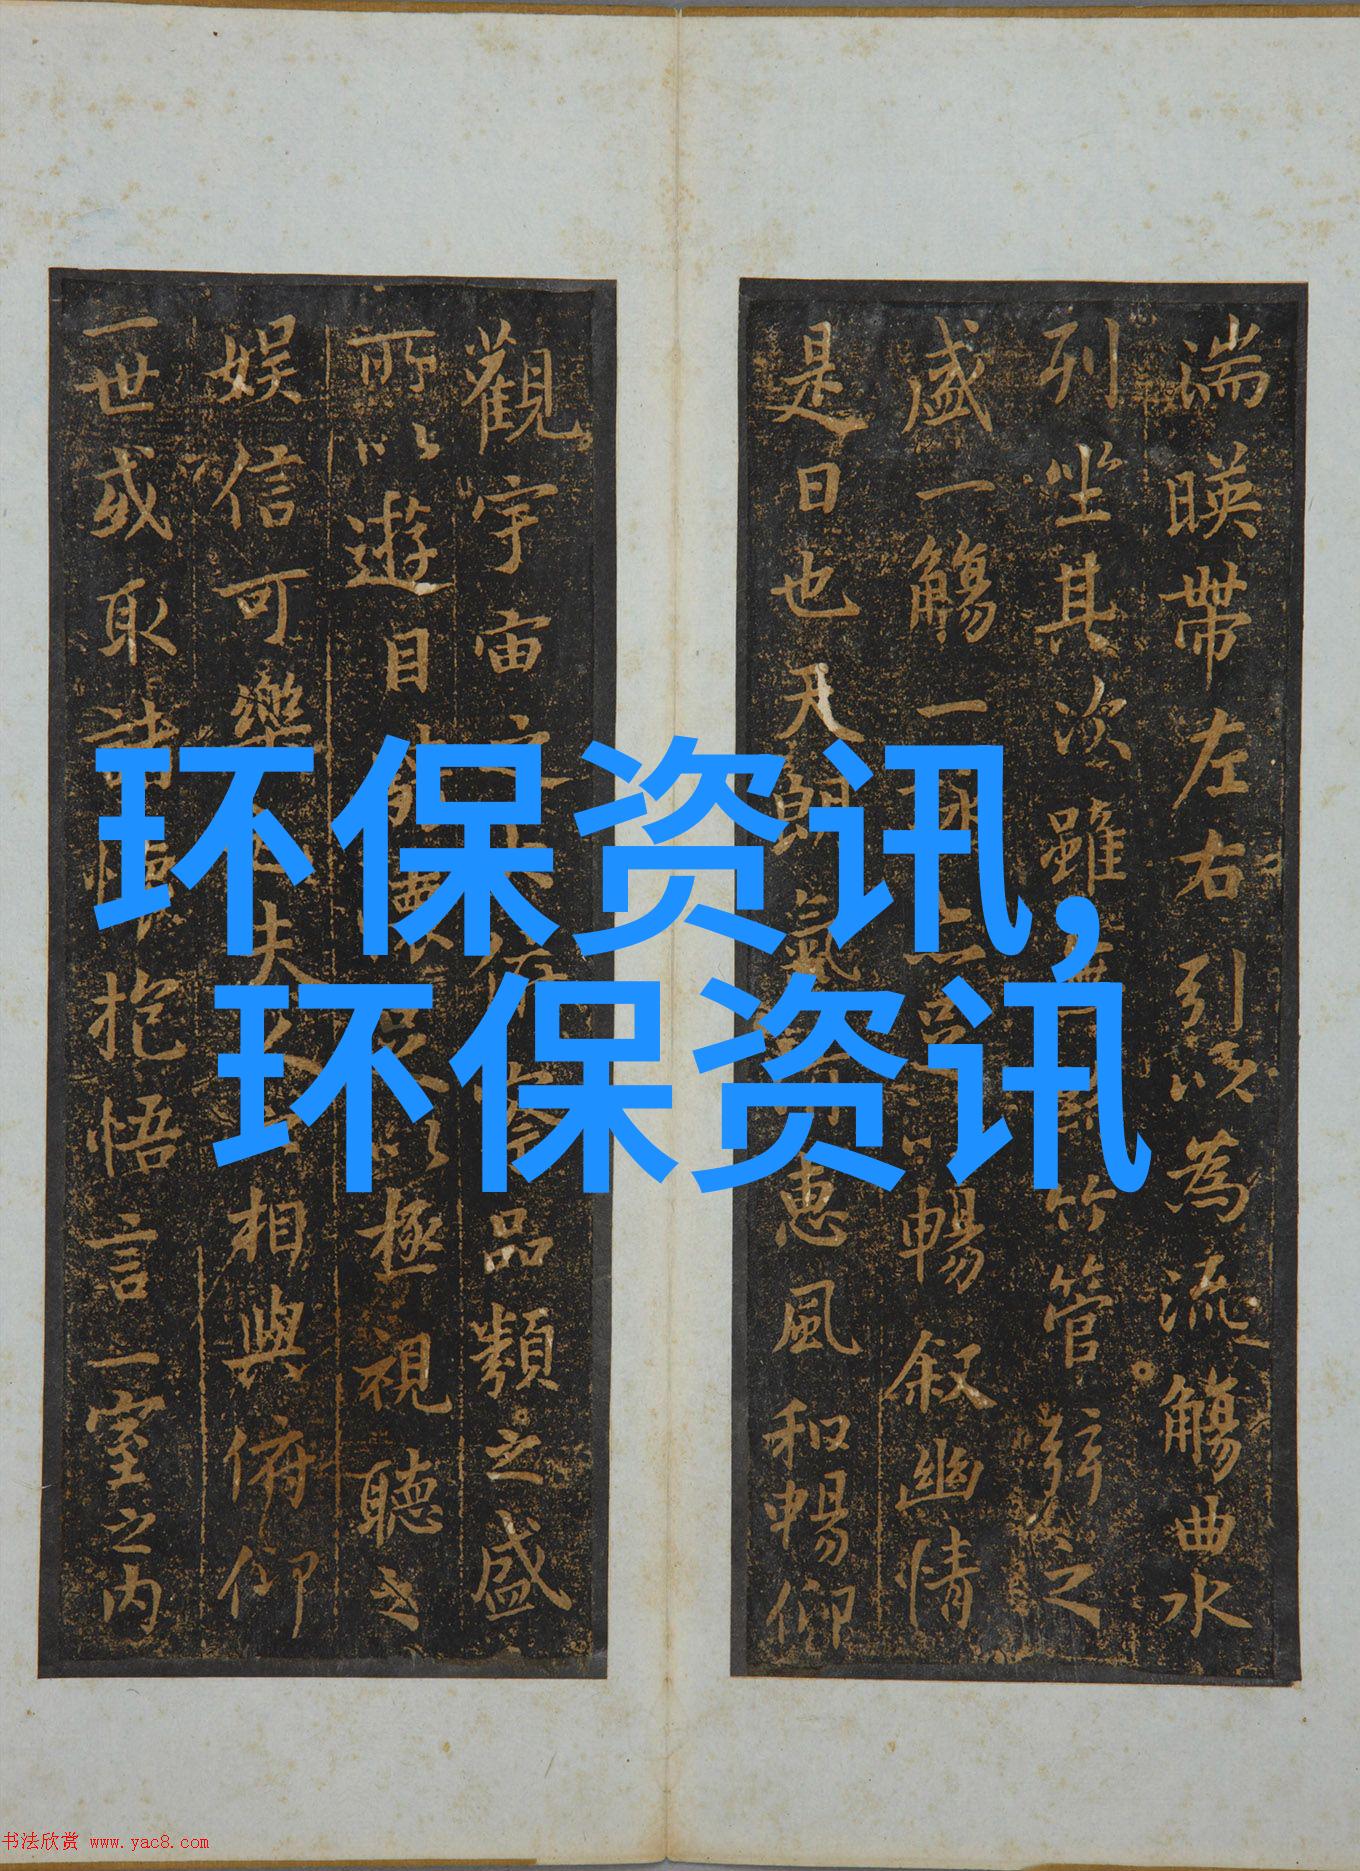 湍暎帶左右引以為流觴曲水
列坐其次雖無絲竹管弦之
盛一觴一詠亦足以暢叙幽情
是日也天朗氣清惠風和暢仰
觀宇宙之大俯察品類之盛
所以遊目騁懷足以極視聽之
娛信可樂也夫人之相與俯仰
一世或取諸懷抱悟言一室之内
环保资讯,
环保资讯
书法欣赏 www.yac8.com